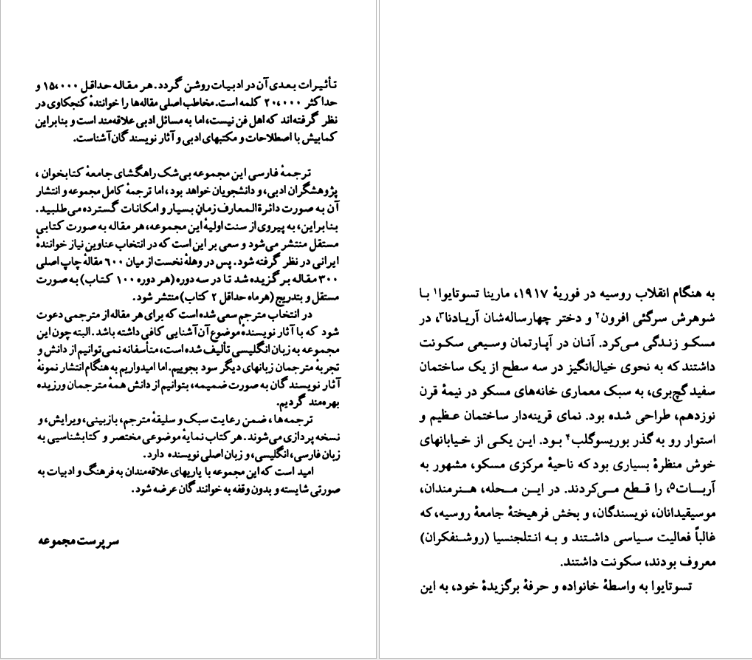 تأثیرات بعدی آن در ادبیات روشن گردد. هر مقاله حداقل ۱۵،۰۰۰ و
حداکثر ۲۰،۰۰۰ کلمه است. مخاطب اصلی مقاله‌ها را خوانندهٔ کنجکاوی در
نظر گرفته‌اند که اهل فن نیست، اما به مسائل ادبی علاقه‌مند است و بنابراین
کمابیش با اصطلاحات و مکتبهای ادبی و آثار نویسندگان آشناست.
ترجمهٔ فارسی این مجموعه بی‌شک راهگشای جامعهٔ کتابخوان،
پژوهشگران ادبی، و دانشجویان خواهد بود، اما ترجمهٔ کامل مجموعه و انتشار
آن به صورت دائرةالمعارف زمان بسیار و امکانات گسترده می‌طلبید.
بنابراین، به پیروی از سنت اولیهٔ این مجموعه، هر مقاله به صورت کتابی
مستقل منتشر می‌شود و سعی بر این است که در انتخاب عناوین نیاز خوانندهٔ
ایرانی در نظر گرفته شود. پس در وهلهٔ نخست از میان ۶۰۰ مقالهٔ چاپ اصلی
۳۰۰ مقاله برگزیده شد تا در سه دوره (هر دوره ۱۰۰ کتاب) به صورت
مستقل و بتدریج (هر ماه حداقل ۲ کتاب) منتشر شود.
در انتخاب مترجم سعی شده است که برای هر مقاله از مترجمی دعوت
شود که با آثار نویسندهٔ موضوع آن آشنایی کافی داشته باشد. البته چون این
مجموعه به زبان انگلیسی تألیف شده است، متأسفانه نمی‌توانیم از دانش و
تجربهٔ مترجمان زبانهای دیگر سود بجوییم. اما امیدواریم به هنگام انتشار نمونهٔ
آثار نویسندگان به صورت ضمیمه، بتوانیم از دانش همهٔ مترجمان ورزیده
بهره‌مند گردیم.
ترجمه‌ها، ضمن رعایت سبک و سلیقهٔ مترجم، بازبینی، ویرایش، و
نسخه پردازی می‌شوند. هر کتاب نمایهٔ موضوعی مختصر و کتابشناسیی به
زبان فارسی، انگلیسی، و زبان اصلی نویسنده دارد.
امید است که این مجموعه با یاریهای علاقه‌مندان به فرهنگ و ادبیات به
صورتی شایسته و بدون وقفه به خوانندگان عرضه شود.
سرپرست مجموعه
به هنگام انقلاب روسیه در فوریهٔ ۱۹۱۷، مارینا تسوتایوا۱ با
شوهرش سرگئی افرون۲ و دختر چهارساله‌شان آریادنا۳، در
مسکو زندگی می‌کرد. آنان در آپارتمان وسیعی سکونت
داشتند که به نحوی خیال‌انگیز در سه سطح از یک ساختمان
سفید گچ‌بری، به سبک معماری خانه‌های مسکو در نیمهٔ قرن
نوزدهم، طراحی شده بود. نمای قرینه‌دار ساختمان عظیم و
استوار رو به گذر بوریسوگلب۴ بود. این یکی از خیابانهای
خوش منظرهٔ بسیاری بود که ناحیهٔ مرکزی مسکو، مشهور به
آربات۵، را قطع می‌کردند. در این محله، هنرمندان،
موسیقیدانان، نویسندگان، و بخش فرهیختهٔ جامعهٔ روسیه، که
غالباً فعالیت سیاسی داشتند و به انتلجنسیا (روشنفکران)
معروف بودند، سکونت داشتند.
تسوتایوا به واسطهٔ خانواده و حرفهٔ برگزیدهٔ خود، به این